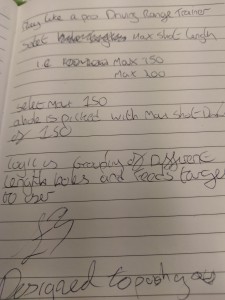 like a pro Driving Range Trainer
Select Max Shot Length
i.e Max 150
Max 200
select Max 150
is picked with Max Shot
of 150
Logic is Grouping of Different
Length holes and feeds target
to user
Designed to push you